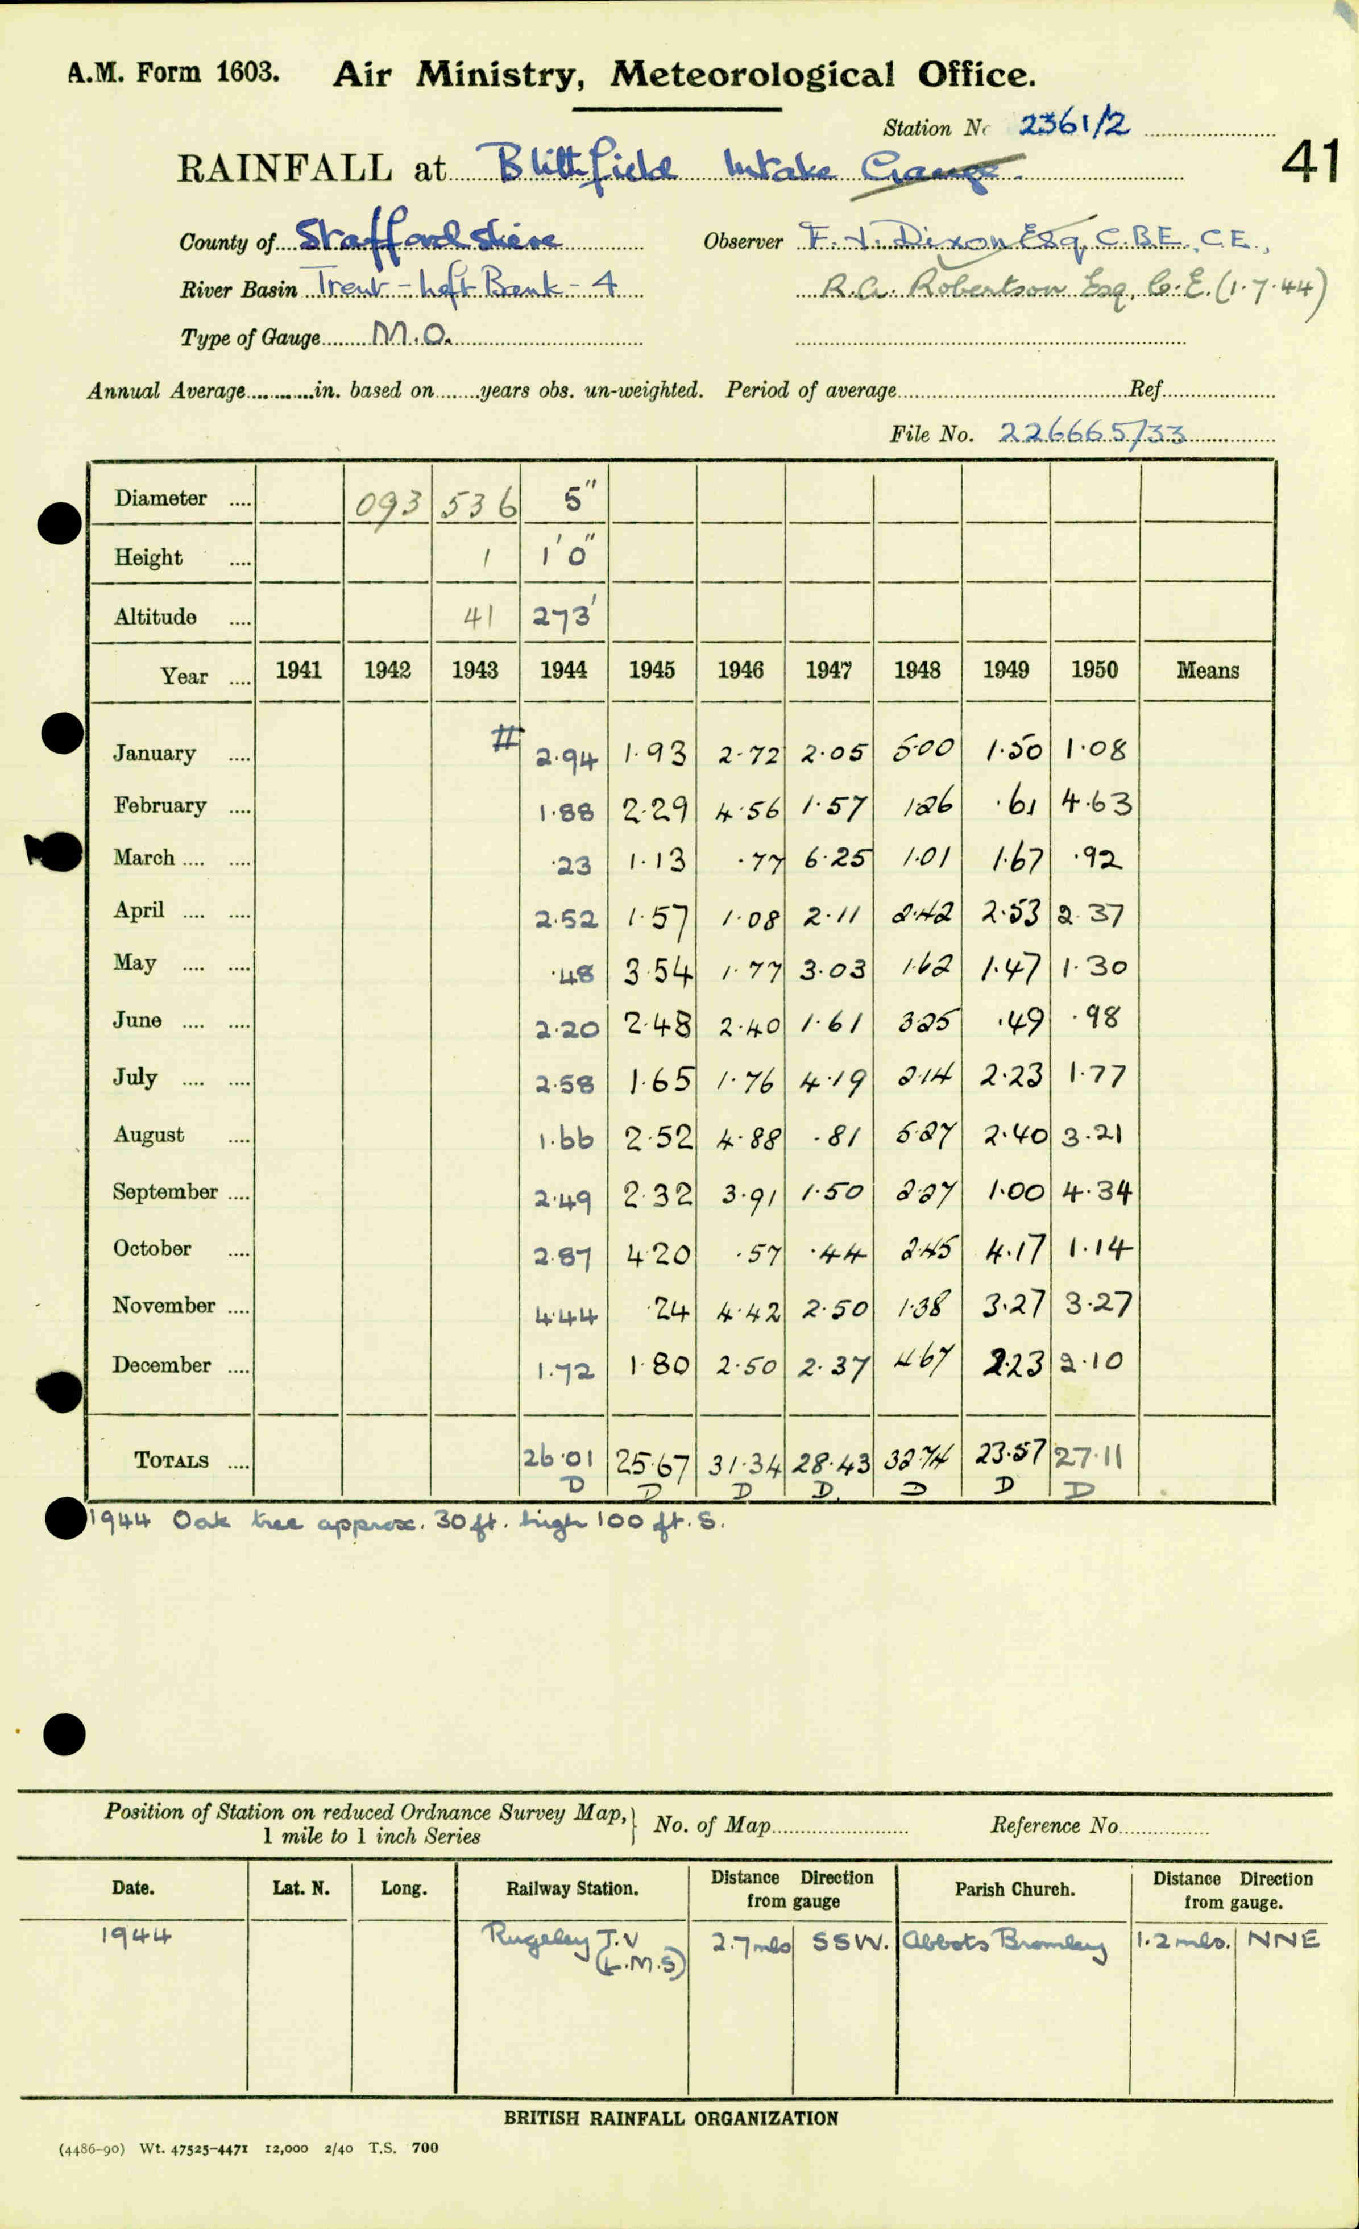 A.M. Form 1603. Air Ministry, Meteorological Office.
Station No 2361/2
41
RAINFALL at Blithfield Intake Gauge.
County of Staffordshire Observer F. J. Dixon Esq, C.B.E., C.E.,
River Basin Trent - Left Bank - 4 R.A. Robertson Esq. C.E. (1.7.44)
Type of Gauge M.O.
Annual Average in. based on years obs. un-weighted. Period of average Ref
File No. 226665/33
Diameter 093 536 5"
Height 1 1'0"
Altitude 41 273'
Year 1941 1942 1943 1944 1945 1946 1947 1948 1949 1950 Means
January # 2.94 1.93 2.72 2.05 5.00 1.50 1.08
February 1.88 2.29 4.56 1.57 1.26 .61 4.63
March .23 1.13 .77 6.25 1.01 1.67 .92
April 2.52 1.57 1.08 2.11 2.42 2.53 2.37
May .48 3.54 1.77 3.03 1.62 1.47 1.30
June 2.20 2.48 2.40 1.61 3.25 .49 .98
July 2.58 1.65 1.76 4.19 2.14 2.23 1.77
August 1.66 2.52 4.88 .81 5.27 2.40 3.21
September 2.49 2.32 3.91 1.50 2.27 1.00 4.34
October 2.87 4.20 .57 .44 2.45 4.17 1.14
November 4.44 .24 4.42 2.50 1.38 3.27 3.27
December 1.72 1.80 2.50 2.37 4.67 2.23 2.10
TOTALS 26.01 25.67 31.34 28.43 32.74 23.57 27.11
D D D D. D D D
1944 Oak tree approx. 30 ft. high 100 ft. S.
Position of Station on reduced Ordnance Survey Map, 1 mile to 1 inch Series No. of Map Reference No
Date. Lat. N. Long. Railway Station. Distance Direction from gauge Parish Church. Distance Direction from gauge.
1944 Rugeley T.V (L.M.S) 2.7 mls SSW. Abbots Bromley 1.2 mls. NNE
BRITISH RAINFALL ORGANIZATION
(4486-90) Wt. 47525-4471 12,000 2/40 T.S. 700